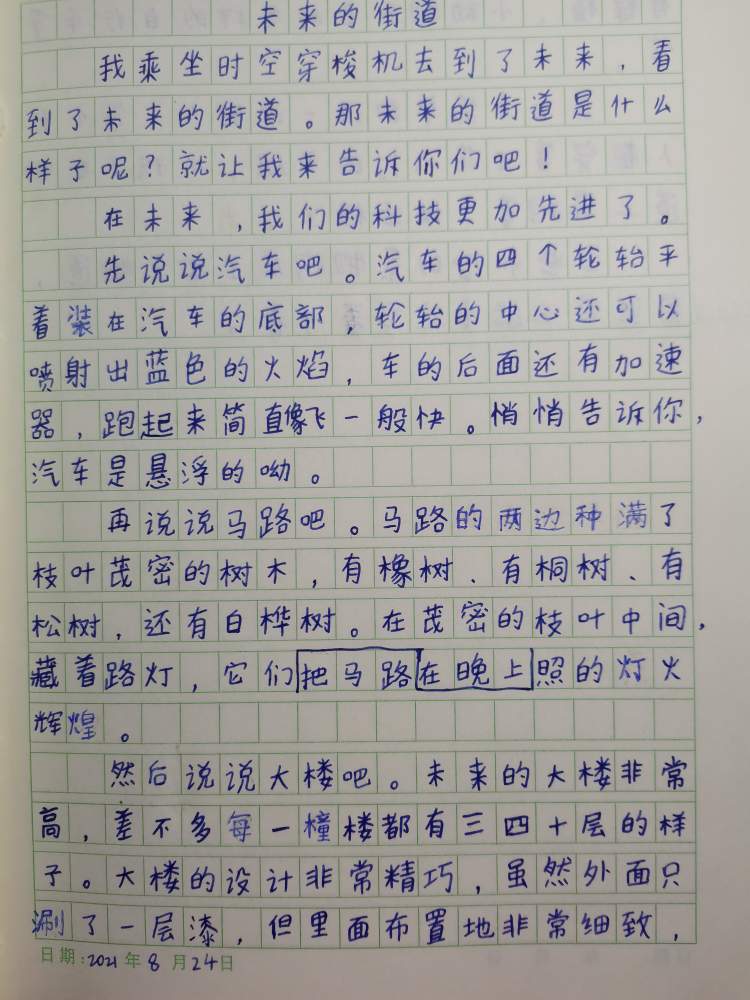 未来的街道
我乘坐时空穿梭机去到了未来，看
到了未来的街道。那未来的街道是什么
样子呢？就让我来告诉你们吧！
在未来，我们的科技更加先进了。
先说说汽车吧。汽车的四个轮轮平
着装在汽车的底部，轮胎的中心还可以
喷射出蓝色的火焰，车的后面还有加速
器，跑起来简直像飞一般快。悄悄告诉你，
汽车是悬浮的呦。
再说说马路吧。马路的两边种满了
枝叶茂密的树木，有橡树、有桐树、有
松树，还有白桦树。在茂密的枝叶中间，
藏着路灯，它们把马路在晚上照的灯火
辉煌。
然后说说大楼吧。未来的大楼非常
高，差不多每一橦楼都有三四十层的样
子。大楼的设计非常精巧，虽然外面只
涮了一层漆，但里面布置地非常细致，
日期：2021年8月24日